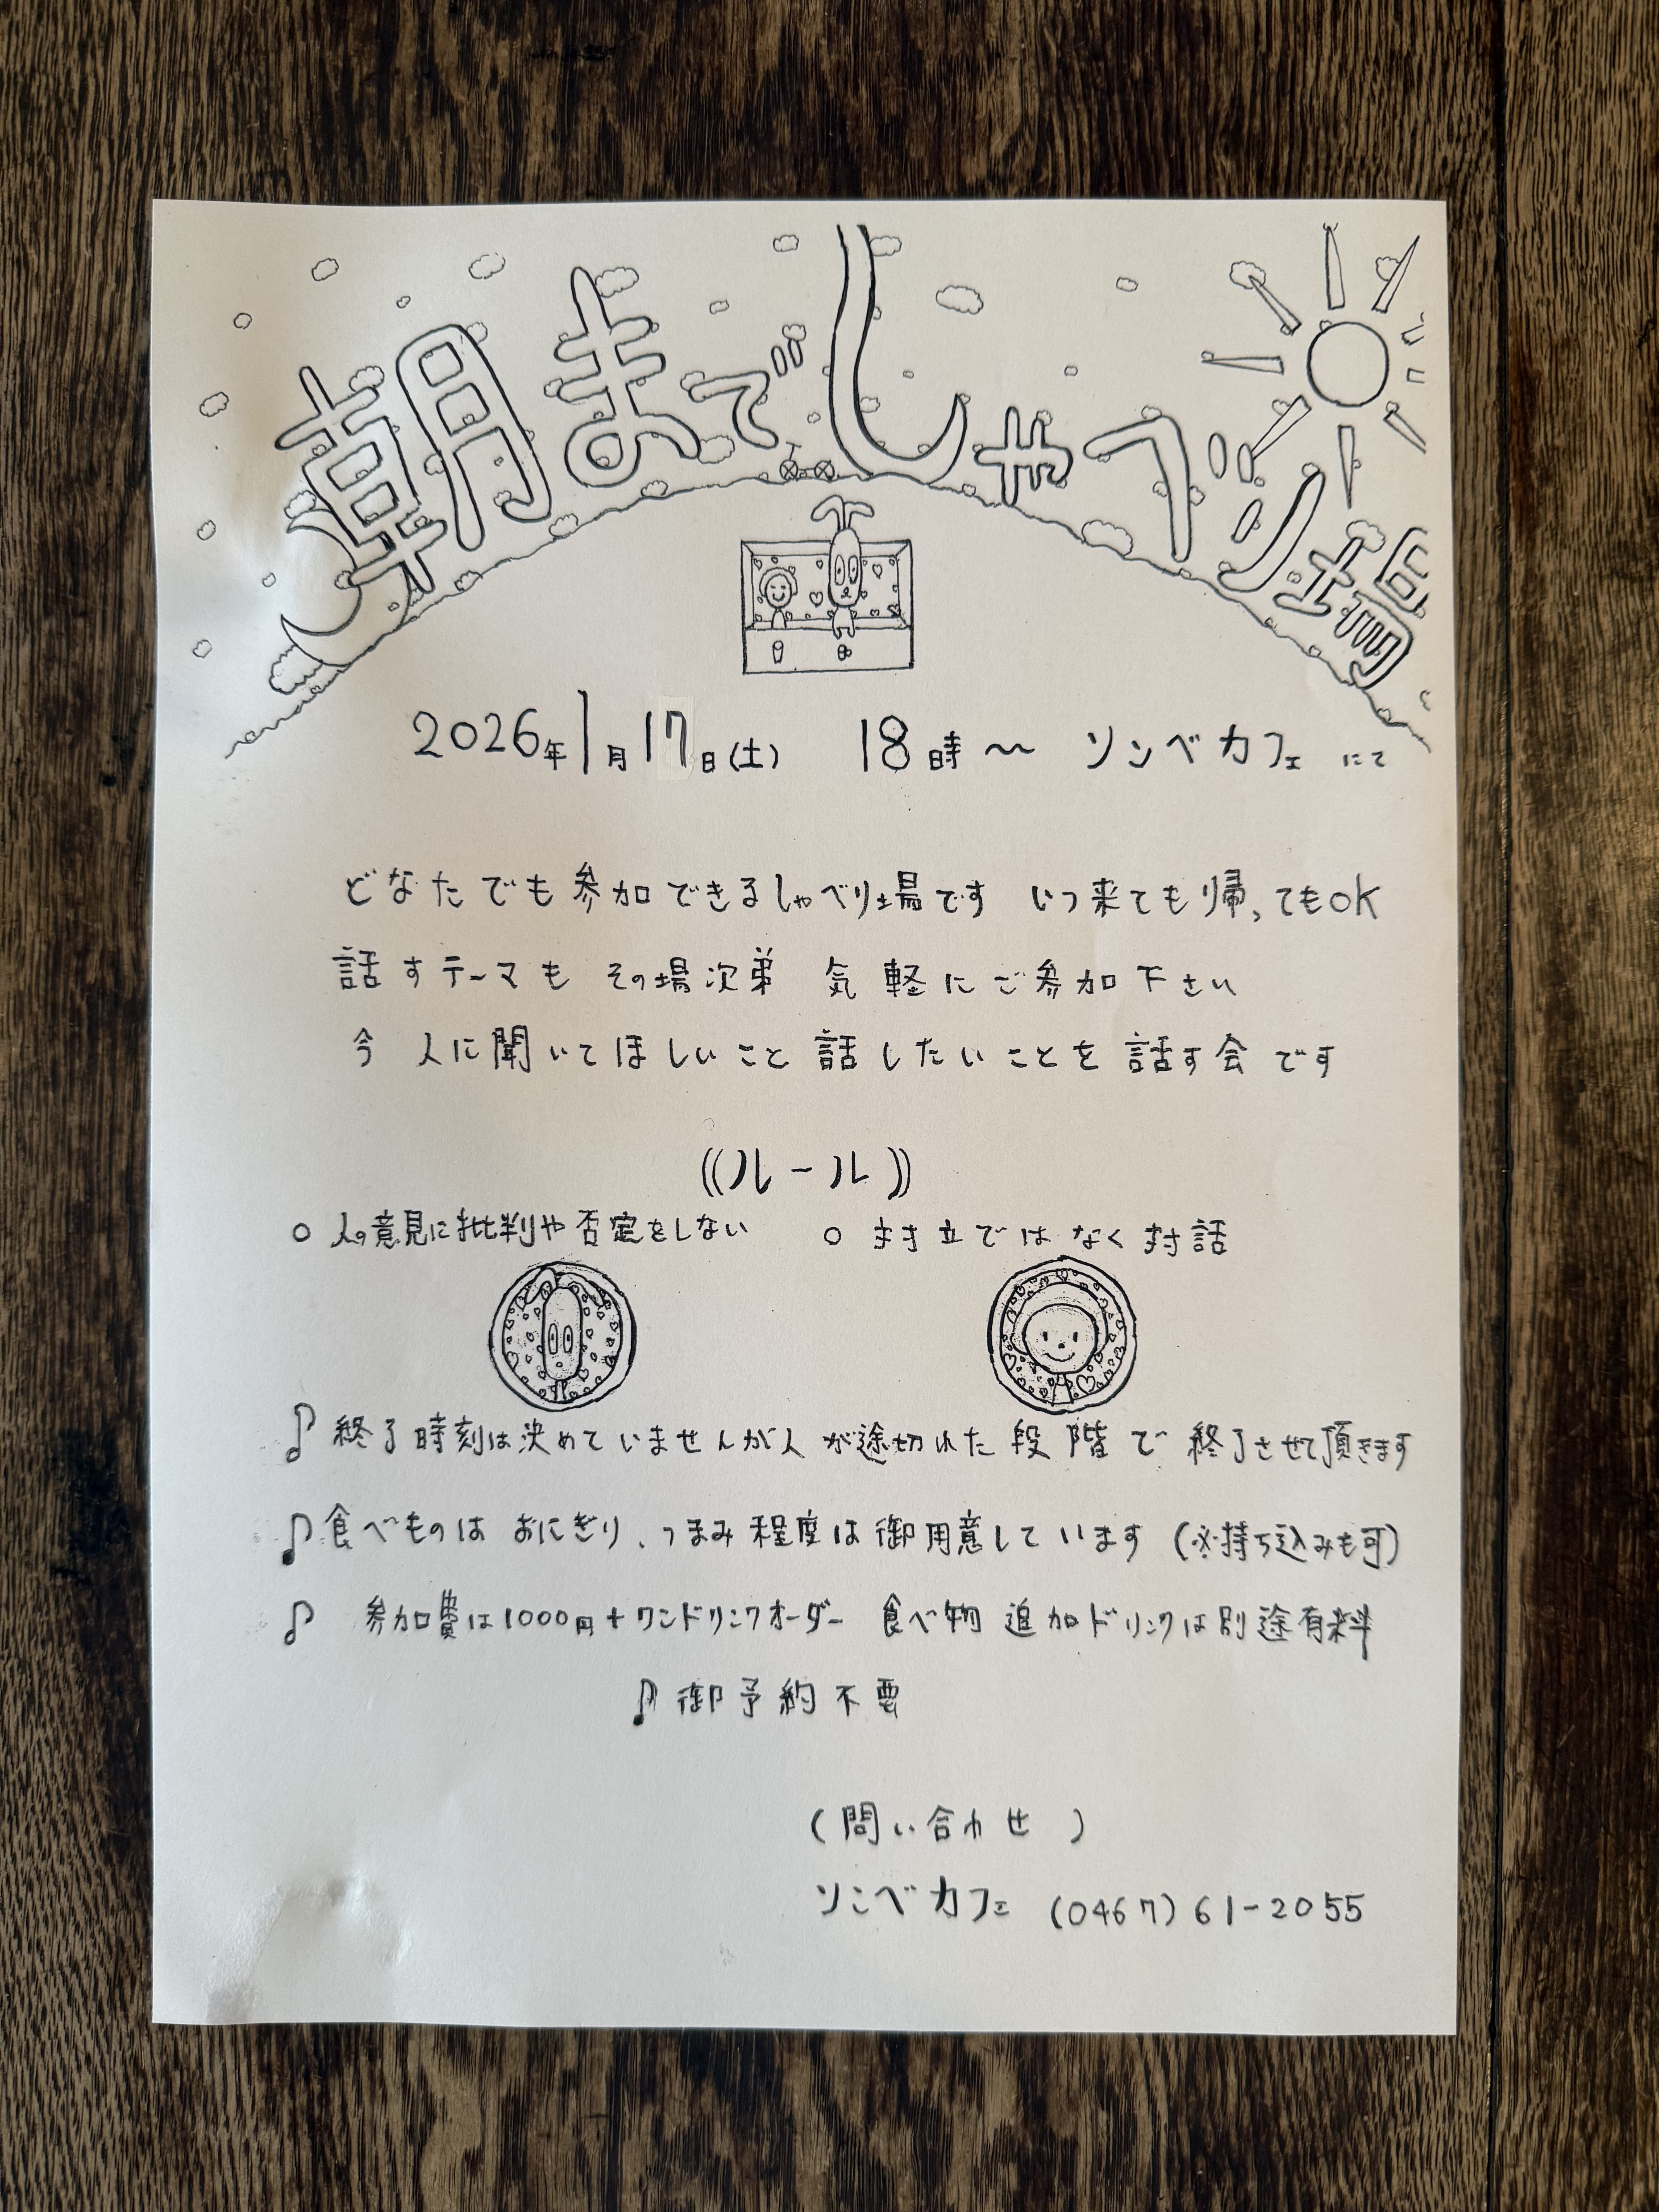 朝までしゃべり場
2026年1月17日(土) 18時〜 ソンベカフェにて
どなたでも参加できるしゃべり場です いつ来ても帰ってもOK
話すテーマも その場次第 気軽にご参加下さい
今 人に聞いてほしいこと 話したいことを 話す会です
((ルール))
○ 人の意見に批判や否定をしない ○ 対立ではなく対話
♪ 終了時刻は決めていませんが人が途切れた段階で 終了させて頂きます
♪ 食べものは おにぎり、つまみ程度は御用意しています (※持ち込みも可)
♪ 参加費は1000円+ワンドリンクオーダー 食べ物 追加ドリンクは別途有料
♪ 御予約不要
(問い合わせ)
ソンベカフェ (0467) 61-2055